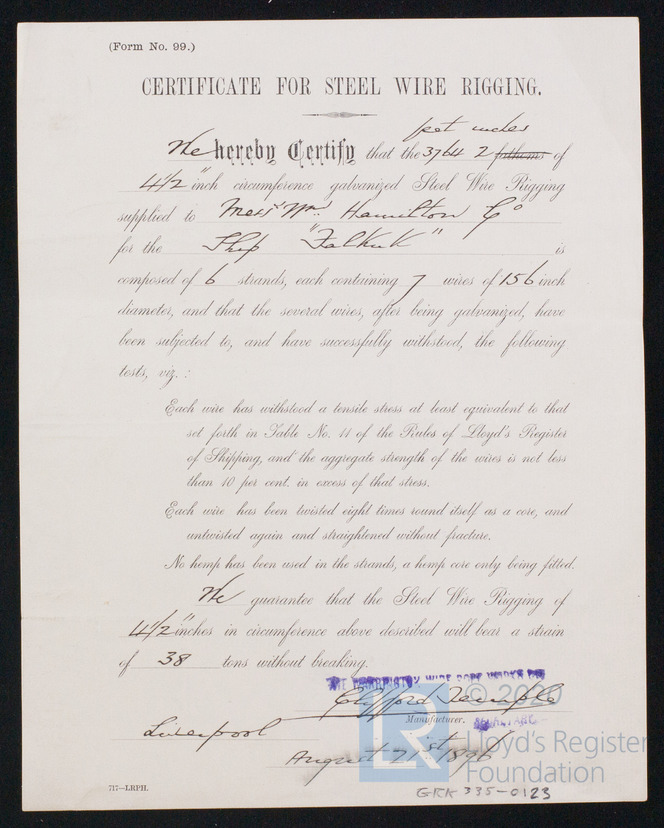 (Form No. 99.)
CERTIFICATE FOR STEEL WIRE RIGGING.
feet inches
We hereby Certify that the 3764 2 fathoms of
4 1/2" inch circumference galvanized Steel Wire Rigging
supplied to Messrs Wm. Hamilton & Co
for the Ship "Falkirk" is
composed of 6 strands, each containing 7 wires of 156 inch
diameter, and that the several wires, after being galvanized, have
been subjected to, and have successfully withstood, the following
tests, viz.:
Each wire has withstood a tensile stress at least equivalent to that
set forth in Table No. 11 of the Rules of Lloyd's Register
of Shipping, and the aggregate strength of the wires is not less
than 10 per cent. in excess of that stress.
Each wire has been twisted eight times round itself as a core, and
untwisted again and straightened without fracture.
No hemp has been used in the strands, a hemp core only being fitted.
We guarantee that the Steel Wire Rigging of
4 1/2" inches in circumference above described will bear a strain
of 38 tons without breaking.
THE WIRE ROPE
Clifford Temple
Manufacturer. SECRETARY
Liverpool
August 21st 1896
717—LRPH.
GRK 335-0123
LR © 2020
Lloyd's Register
Foundation